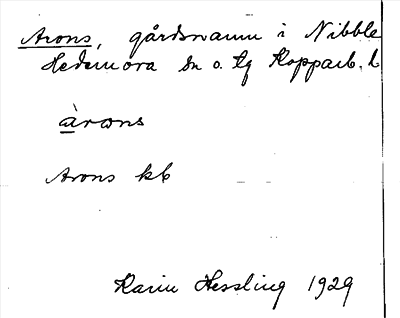 Arons, gårdsnamn i Nibble
Hedemora sn o. tg Kopparb. l
àrons
Arons kb
Karin Hessling 1929